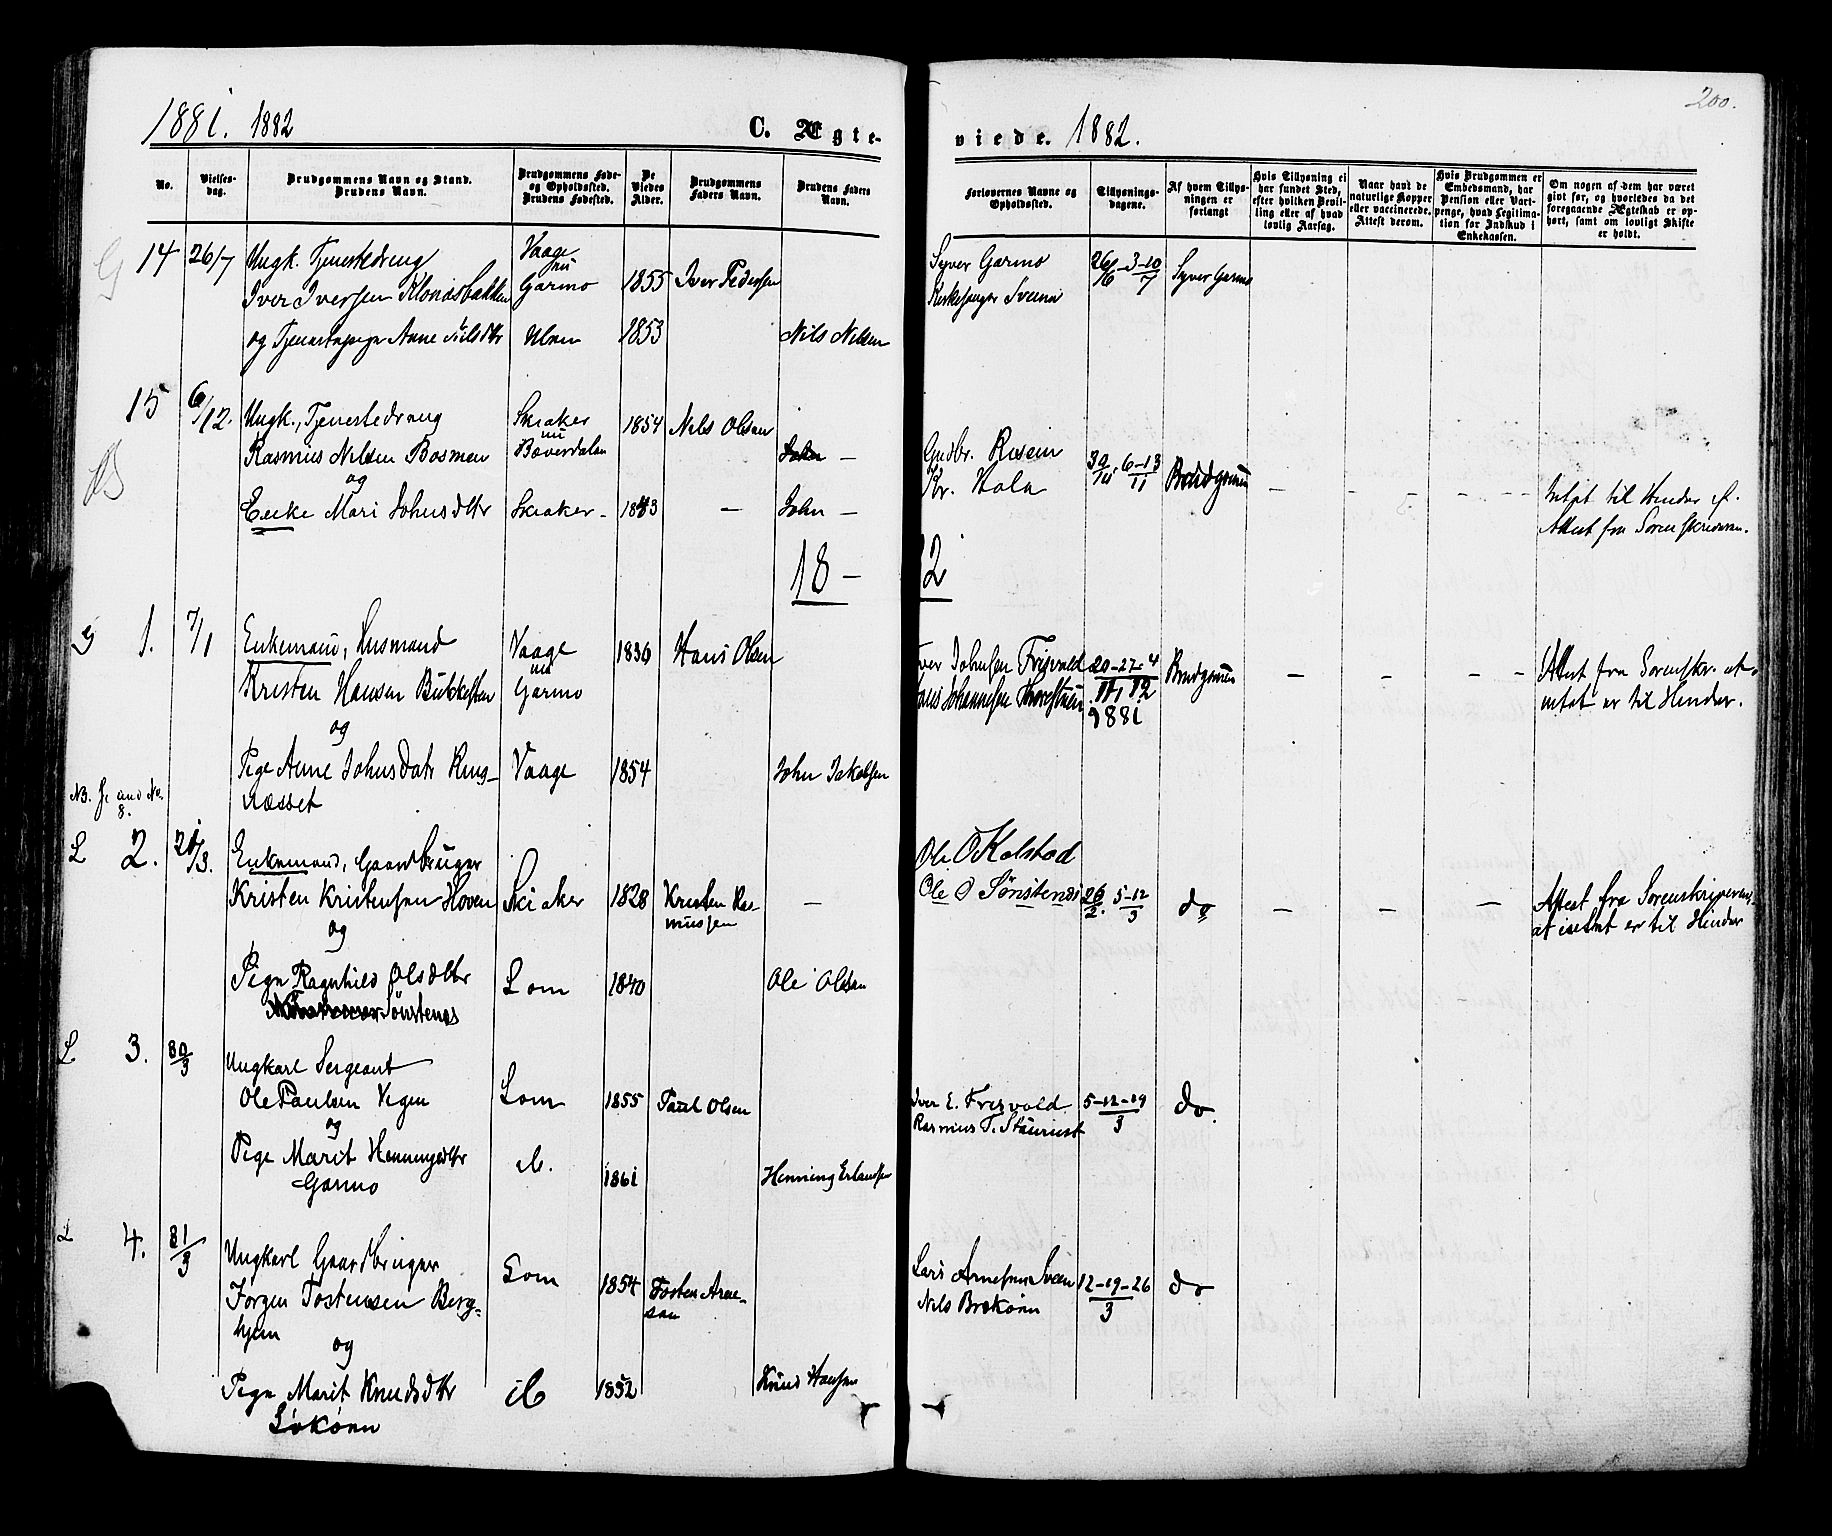 200.
1881. 1882
C. Ægte-
viede. 1882.
No.
Vielses-
dag.
Brudgommens Navn og Stand.
Brudens Navn.
Brudgommens Føde-
og Opholdssted.
Brudens Fødested.
De
Viedes
Alder.
Brudgommens
Faders Navn.
Brudens Faders
Navn.
Forlovernes Navne og
Opholdssted.
Tillysnings-
dagene.
Af hvem Tillys-
ningen er
forlangt
Hvis Tillysning ei
har fundet Sted,
efter hvilken Bevil-
ling eller af hvad
lovlig Aarsag.
Naar havt de
naturlige Kopper
eller vaccinerede.
Attest derom.
Hvis Brudgommen er
Embedsmand, har
Pension eller Vart-
penge, hvad Legitima-
tion for Indskud i
Enkekassen.
Om nogen af dem har været
givt før, og hvorledes da det
foregaaende Ægteskab er op-
hørt, samt om lovligt Skifte
er holdt.
G 14 26/7 Ungk. Tjenestedreng
Iver Iversen Klonæsbakken
og Tjenestepige Anne Nilsdtr
Vaage
nu
Garmo
Ulven
1855
1853
Iver Pedersen
Nils Nilsen
Syver Garmo
Kirkesanger Sveine
26/6 3-10/7
Syver Garmo
B 15 6/12. Ungk., Tjenestedreng
Rasmus Nilsen Bosmen
og
Enke Mari Johnsdtr
Skiaker
nu
Bæverdalen
Skiaker -
1854
1843
Nils Olsen
-
John -
Gudbr. Rusein
Kr. Hola
30/10 6-13/11
Brudgommen
- - - -
Intet til Hinder cf.
Attest fra Sorenskriveren.
18 - 82
G 1. 7/1 Enkemand, Husmand
Kristen Hansen Bukkesten
og
Pige Anne Johnsdatr Rus-
næsset
Vaage
nu
Garmo
Vaage
1836
1854
Hans Olsen
John Jakobsen
Iver Johnsen Frisvold
20-27-4
11, 12
1881
Brudgommen
- - - -
Attest fra Sorenskr. at
intet er til Hinder.
NB. se and No.
8.
L 2. 21/3. Enkemand, Gaardbruger
Kristen Kristensen Hoven
og
Pige Ragnhild Olsdtr
Sønstenæs
Skiaker
Lom
1828
1840
Kristen Ras-
mussen
-
Ole Olsen
Ole O Kolstad
Ole O Sønstenæs
26/2. 5-12/3
do
- - -
Attest fra Sorenskriveren,
at intet er til Hinder
L 3. 30/3 Ungkarl Sergeant
Ole Paulsen Vigen
og
Pige Marit Henningsdtr
Garmo
Lom
ib.
1855
1861
Paul Olsen
Henning Erlandsen
Iver E. Frisvold
Rasmus T. Staurust
5-12-19/3
do.
L 4. 31/3 Ungkarl Gaardbruger
Jørgen Tostensen Berg-
hjem
og
Pige Marit Knudsdtr
Løkøren
Lom
ib
1854
1852
Tosten Arne-
sen
Knud Hansen
Lars Arnesen Sveen
Nils Brækøren
12-19-26/3
do